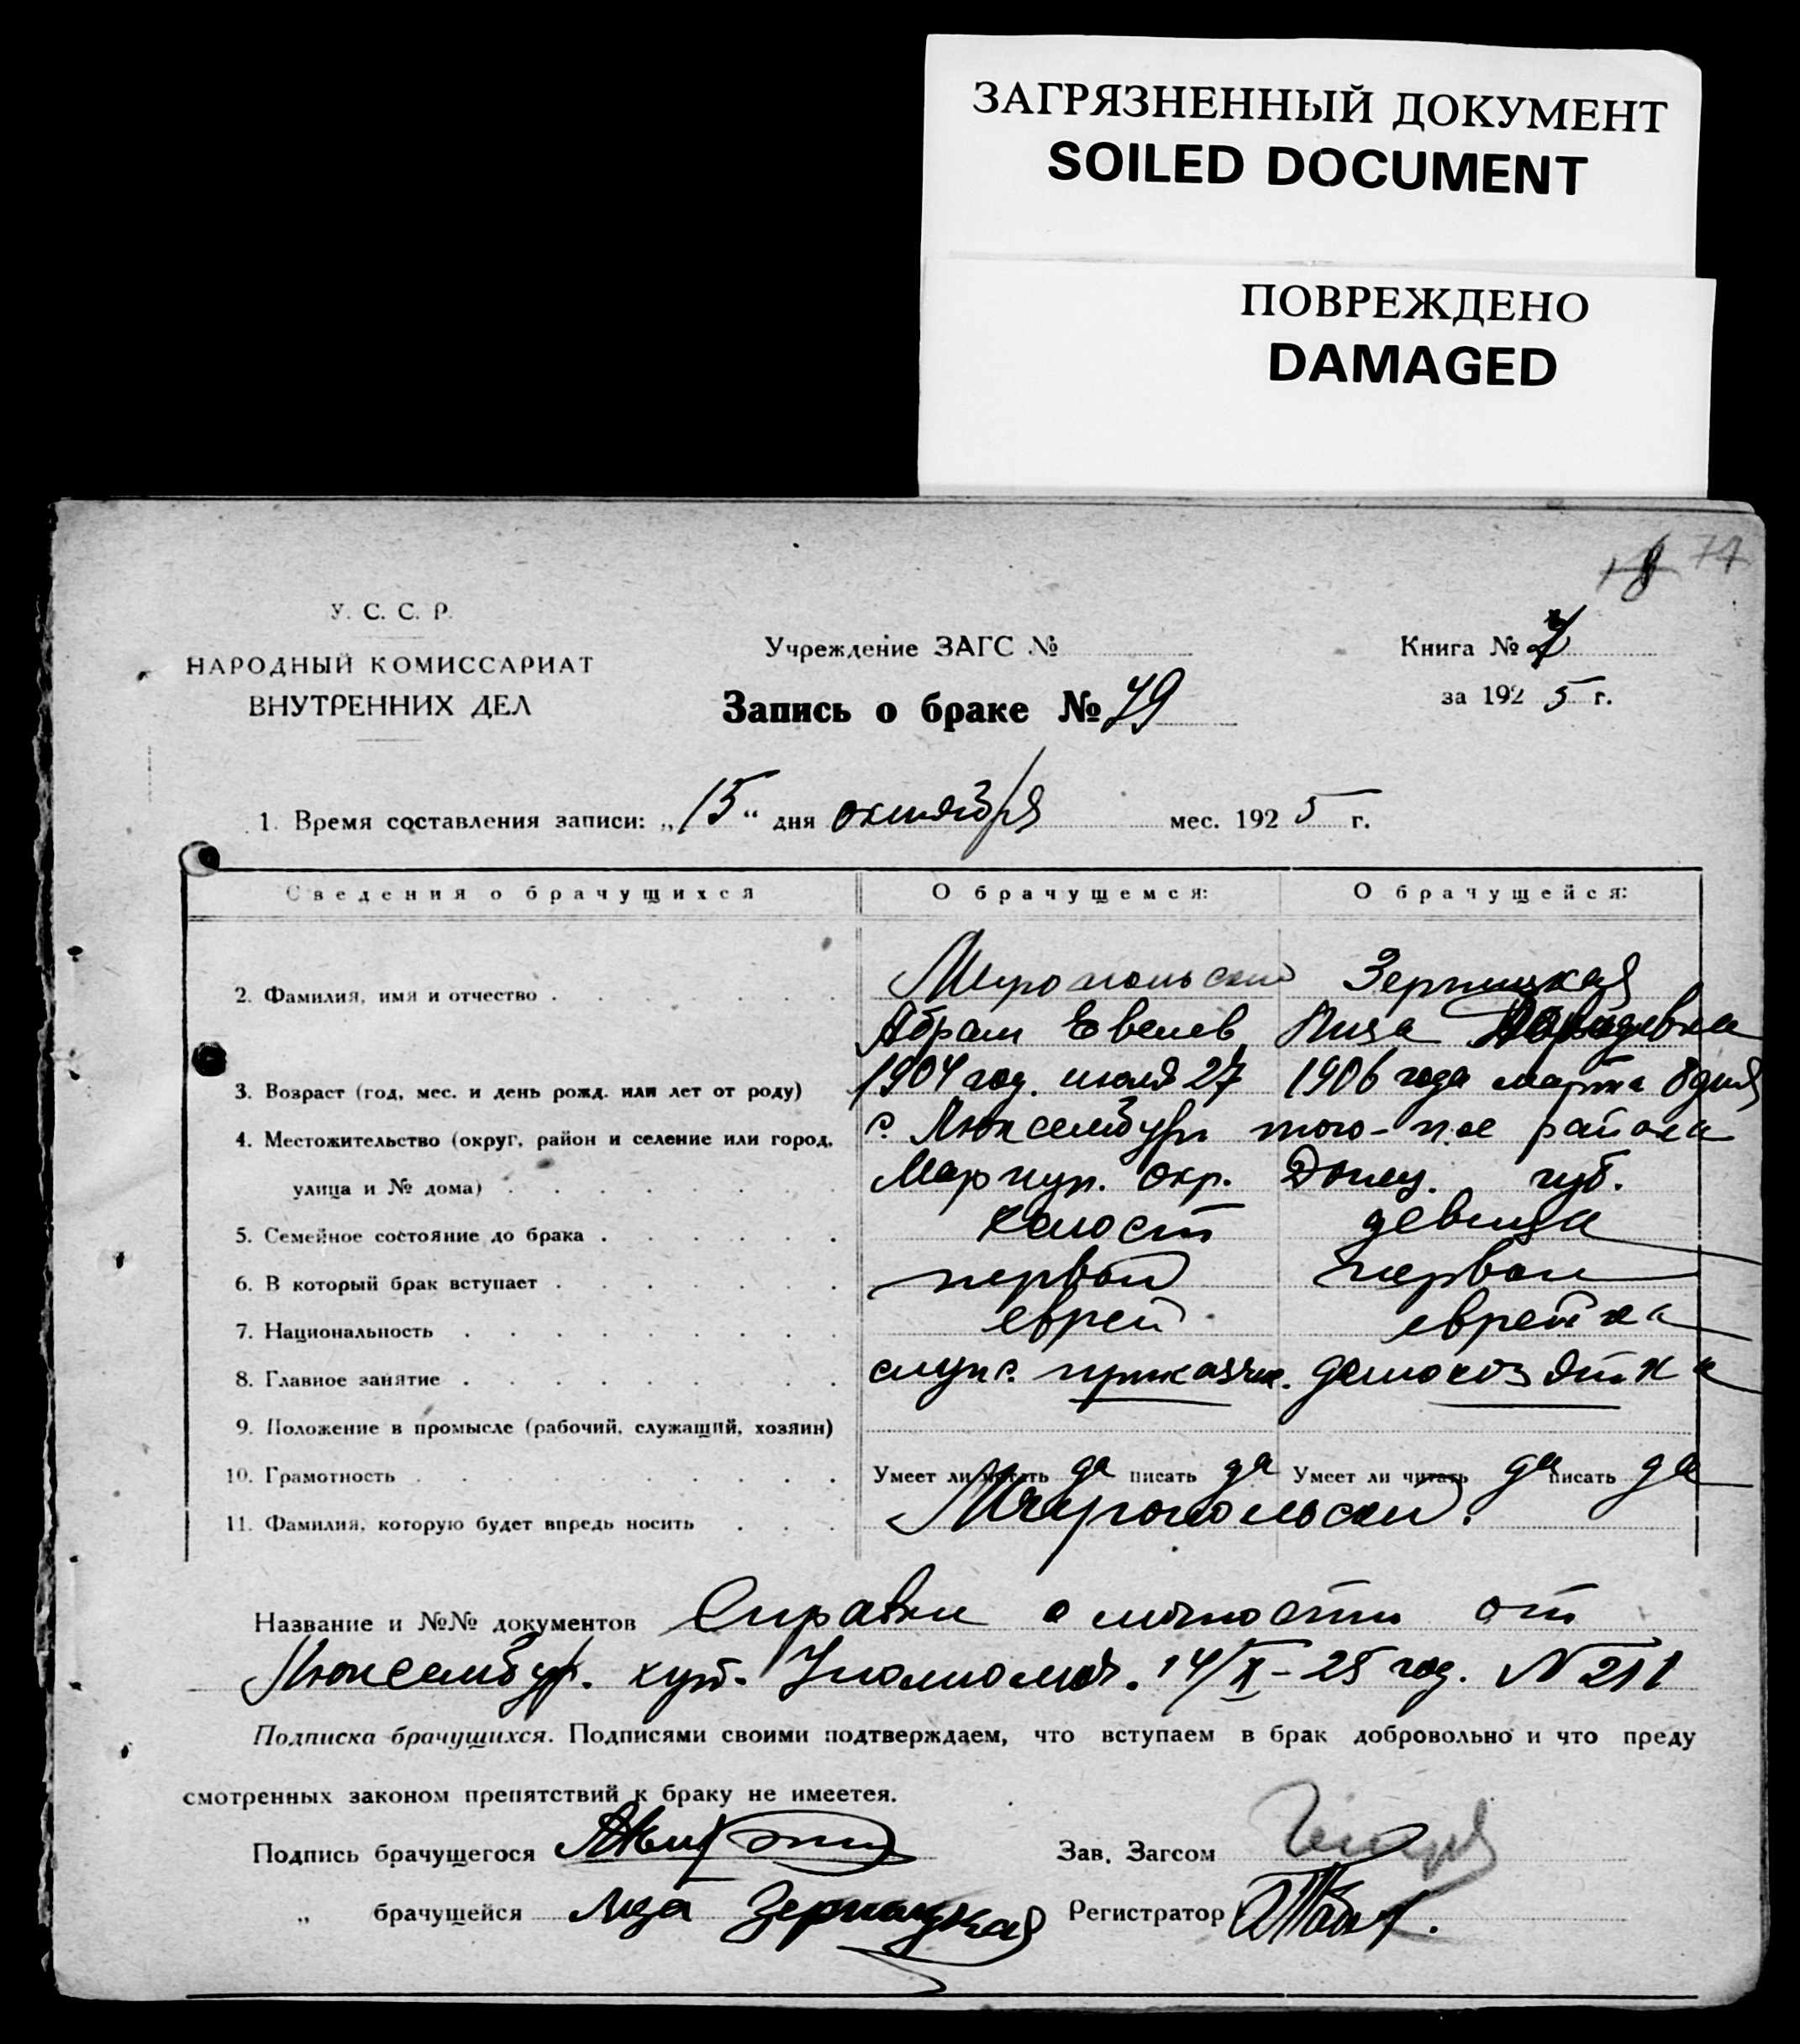 ЗАГРЯЗНЕННЫЙ ДОКУМЕНТ
SOILED DOCUMENT
ПОВРЕЖДЕНО
DAMAGED
74
У. С. С. Р.
НАРОДНЫЙ КОМИССАРИАТ
ВНУТРЕННИХ ДЕЛ
Учреждение ЗАГС №
Запись о браке № 79
Книга №
за 1925 г.
1. Время составления записи: „15“ дня октября мес. 1925 г.
Сведения о брачущихся О брачущемся: О брачущейся:
2. Фамилия, имя и отчество Зерницкая
Абрам Евелев Лиза Давидовна
3. Возраст (год, мес. и день рожд. или лет от роду) 1904 год. июля 27 1906 года марта 8 дня
4. Местожительство (округ, район и селение или город, с. Люксембург того-же района
улица и № дома) Мариуп. окр. Донец. губ.
5. Семейное состояние до брака холост девица
6. В который брак вступает первой первом
7. Национальность еврей еврейка
8. Главное занятие служ. приказчик. домохозяйка
9. Положение в промысле (рабочий, служащий, хозяин)
10. Грамотность Умеет ли читать да писать да Умеет ли читать да писать да
11. Фамилия, которую будет впредь носить Миропольский.
Название и №№ документов Справки о личности от
Люксембур. 14/X-25 год. N 211
Подписка брачущихся. Подписями своими подтверждаем, что вступаем в брак добровольно и что преду
смотренных законом препятствий к браку не имеетея.
Подпись брачущегося Зав. Загсом
„ брачущейся Лиза Зерницкая Регистратор